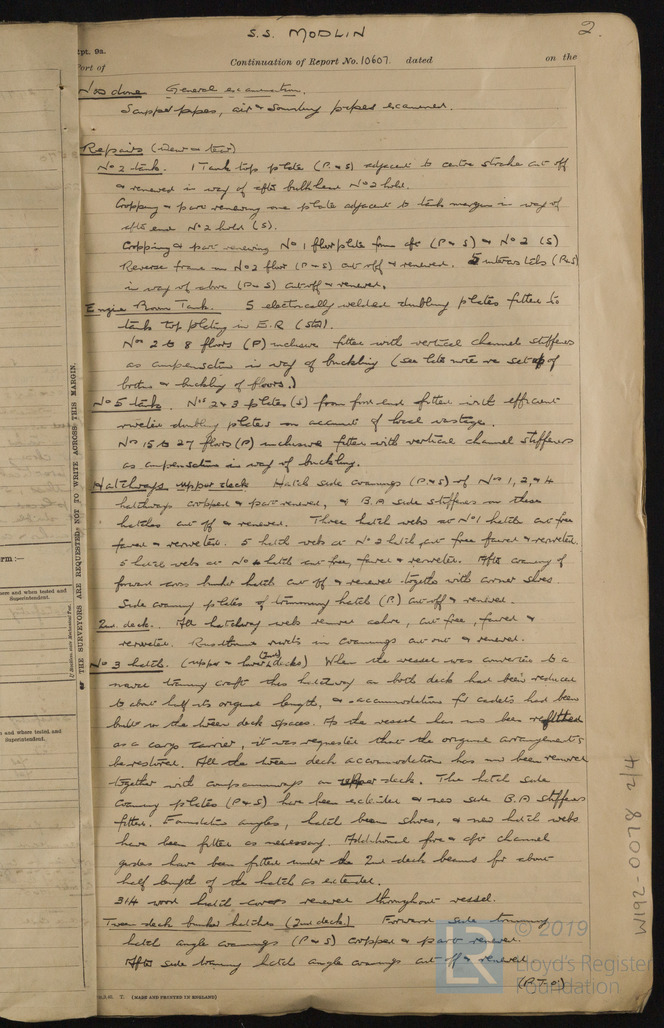 S.S. MODLIN
2.
Rpt. 9a.
Port of
Continuation of Report No. 10607. dated
on the
Now done General examination.
Scupper pipes, air & sounding pipes examined.
Repairs (wear & tear)
No 2 tank. 1 Tank top plate (P & S) adjacent to centre strake cut off
& renewed in way of after bulkhead No 2 hold.
Cropping & part renewing one plate adjacent to tank margin in way of
after end No 2 hold (S).
Cropping & part renewing No 1 floorplate from aft (P & S) & No 2 (S)
Reverse frame on No 2 floor (P & S) cut off & renewed. 5 (P & S)
in way of above (P & S) cut off & renewed.
Engine Room Tank. 5 electrically welded doubling plates fitted to
tank top plating in E.R (stbd).
Nos 2 to 8 floors (P) inclusive fitted with vertical channel stiffeners
as compensation in way of buckling (see re set up of
& buckling of floors.)
No 5 tank. Nos 2 & 3 plates (S) from fore end fitted with efficient
riveted doubling plates on account of local wastage.
Nos 15 to 27 floors (P) inclusive fitted with vertical channel stiffeners
as compensation in way of buckling.
Hatchways upper deck Hatch side coamings (P & S) of Nos 1, 2, & 4
hatchways cropped & part renewed, & B.A side stiffeners on these
hatches cut off & renewed. Three hatch webs at No 1 hatch cut free
faired & reriveted. 5 hatch webs at No 2 hatch cut free faired & reriveted.
5 hatch webs at No 4 hatch cut free, faired & reriveted. After coaming of
forward cross bunker hatch cut off & renewed together with corner shoes.
Side coaming plates of trimming hatch (P.) cut off & renewed.
2nd. deck. All hatchway webs removed ashore, cut free, faired &
reriveted. rivets in coamings cut out & renewed.
No 3 hatch. (upper & lower (2nd) decks) When the vessel was converted to a
naval training craft this hatchway on both decks had been reduced
to about half its original length, & accommodation for cadets had been
built in the tween deck spaces. As the vessel has now been refitted
as a cargo carrier, it was requested that the original arrangements
be restored. All the tween deck accommodation has now been removed
together with companionways on upper deck. The hatch side
coaming plates (P & S) have been extended & new side B.A stiffeners
fitted. Foundation angles, hatch beam shoes, & new hatch webs
have been fitted as necessary. Additional fore & aft channel
girders have been fitted under the 2nd deck beams for about
half length of the hatch as extended.
314 wood hatch covers renewed throughout vessel.
Tween deck bunker hatches (2nd deck.) Forward side trimming
hatch angle coamings (P & S) cropped & part renewed.
After side trimming hatch angle coamings cut off & renewed
(P.T.O.)
THE SURVEYORS ARE REQUESTED NOT TO WRITE ACROSS THIS MARGIN.
rm:—
and where tested and
Superintendent.
(MADE AND PRINTED IN ENGLAND)
W192-0078 2/4
LR
© 2019
Lloyd's Register
Foundation